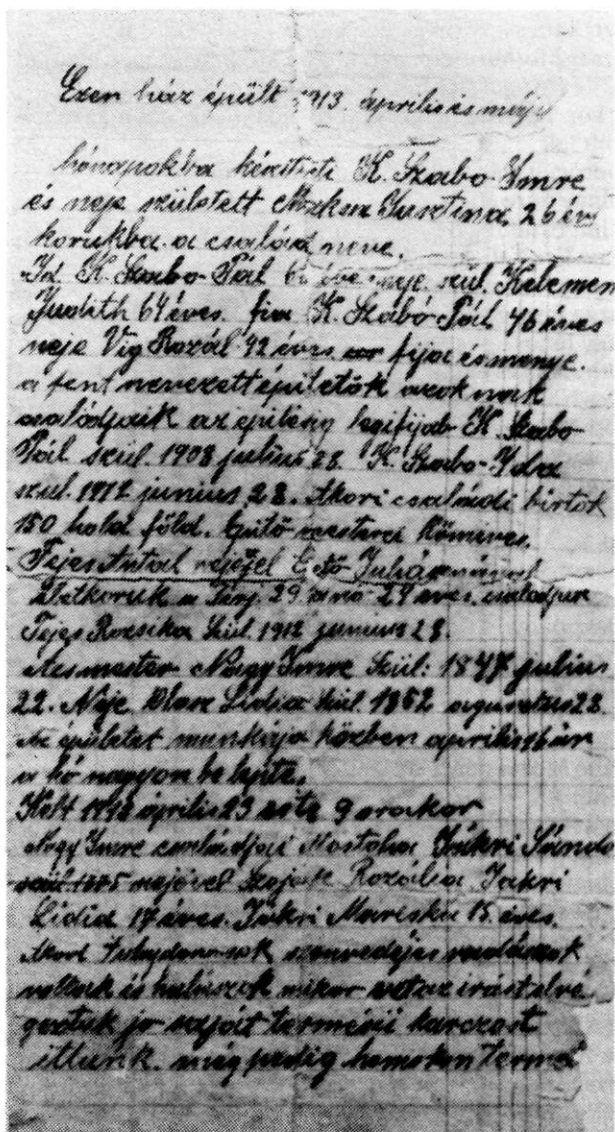 Ezen ház épült 1913. április és máj
hónapokba K. Szabo Imre
és neje született Jusztina 26 év
korukba a család neve.
Id K. Szabo Pál neje szül. Kelemen
Judith 64 éves. fia K. Szabó Pál 46 éves
neje Vig Rozál 42 éves fija és menye.
a fent nevezett építetök azoknak
családjaik az épitésig legifjab K. Szabo
Pál szül. 1908 julius 28. K. Szabo Ida
szül. 1912 junius 28. Akori családi birtok
150 hold föld. Épitő mesterei kömives.
Fejes Antal nejével Juliánnával
életkoruk a férj. 29 a nő 24 éves.
Fejes Rozsika szül. 1912 junius 28.
Ács mester Nagy Imre szül: 1847 julius
22. Neje Lidia szül. 1862 augusztus 28
Az épületet munkája közben április
a hó nagyon be lepte.
Kelt 1913 április 23 este 9 orakor
Nagy Imre családjai Mostoha Jakri Sánd
nejével Rozália Jakri
Lidia 17 éves. Jakri Mariska 15 éves.
szenvedéjes vadászok
voltak és halászok mikor ezt az irást elvé
geztük jo saját termésü karczost
ittunk. még pedig homokon termet